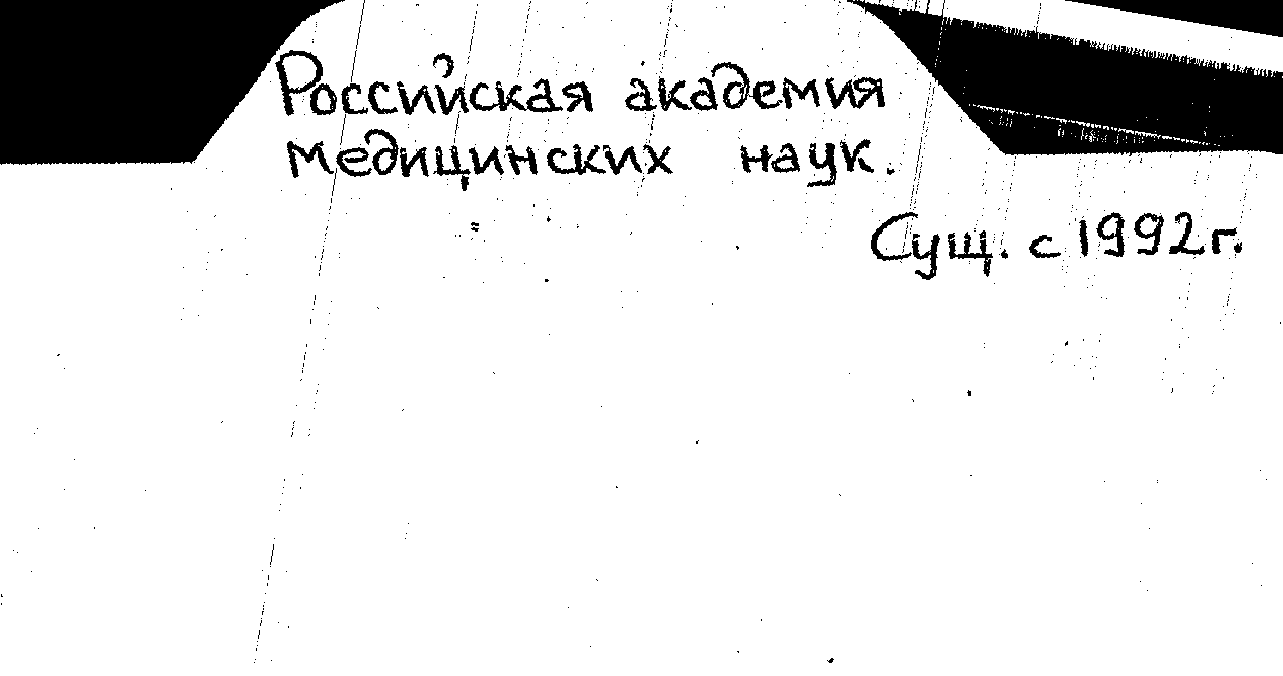 Российская академия
медицинских наук.
Сущ. с 1992г.